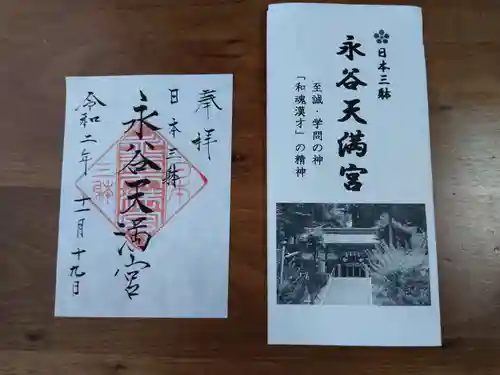 奉拝
日本三躰
永谷天満宮
令和二年 十一月 十九日
日本三躰
永谷天満宮
至誠・学問の神
「和魂漢才」の精神